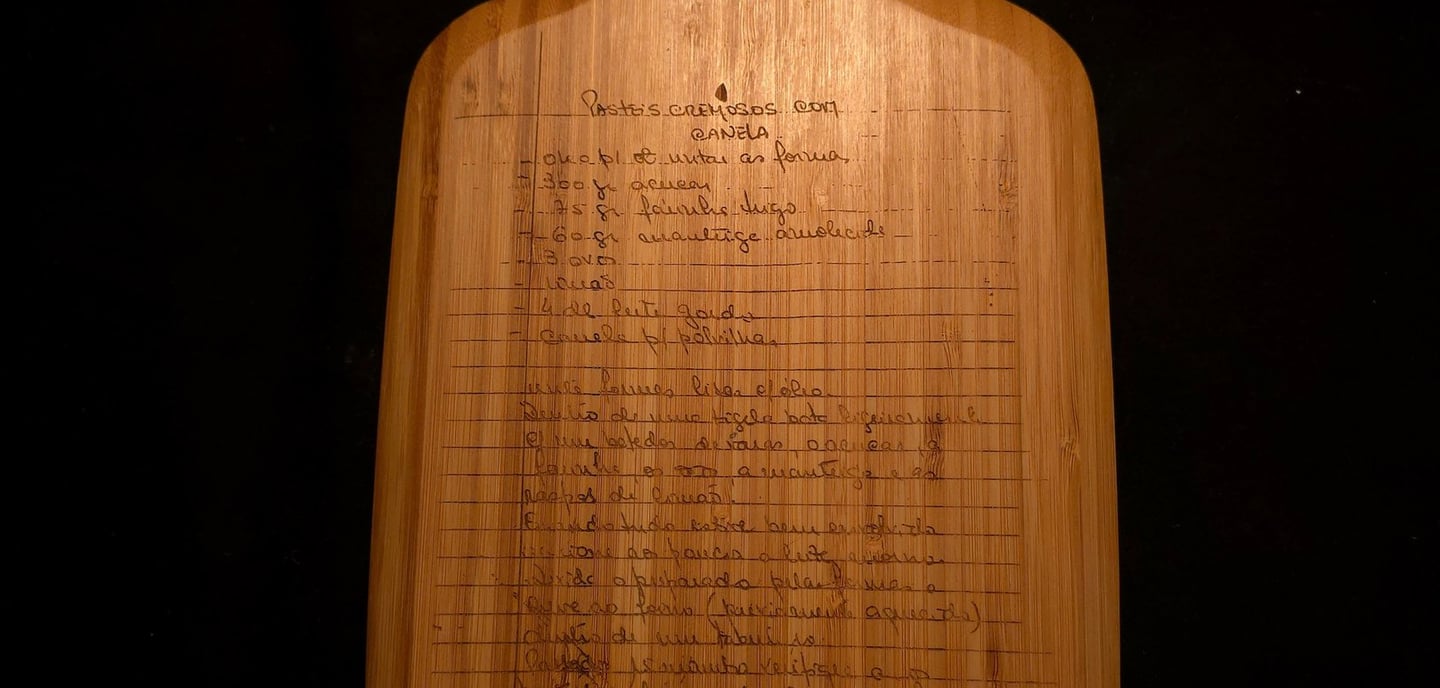 PASTEIS CREMOSOS COM
CANELA
- óleo p/ untar as formas
- 300 gr açucar
- 75 gr farinha trigo
- 60 gr manteiga amolecida
- 3 ovos
- limão
- 4 dl leite gordo
- canela p/ polvilhar
unte formas lisas c/ óleo.
Dentro de uma tigela bata ligeiramente
c/ um batedor de varas, o açucar, a
farinha, os ovos a manteiga e as
raspas de limão.
Quando tudo estive bem envolvido
adicione aos poucos o leite
Divida o preparado pelas formas e
leve ao forno (previamente aquecido)
dentro de um tabuleiro.
15 minutos verifique